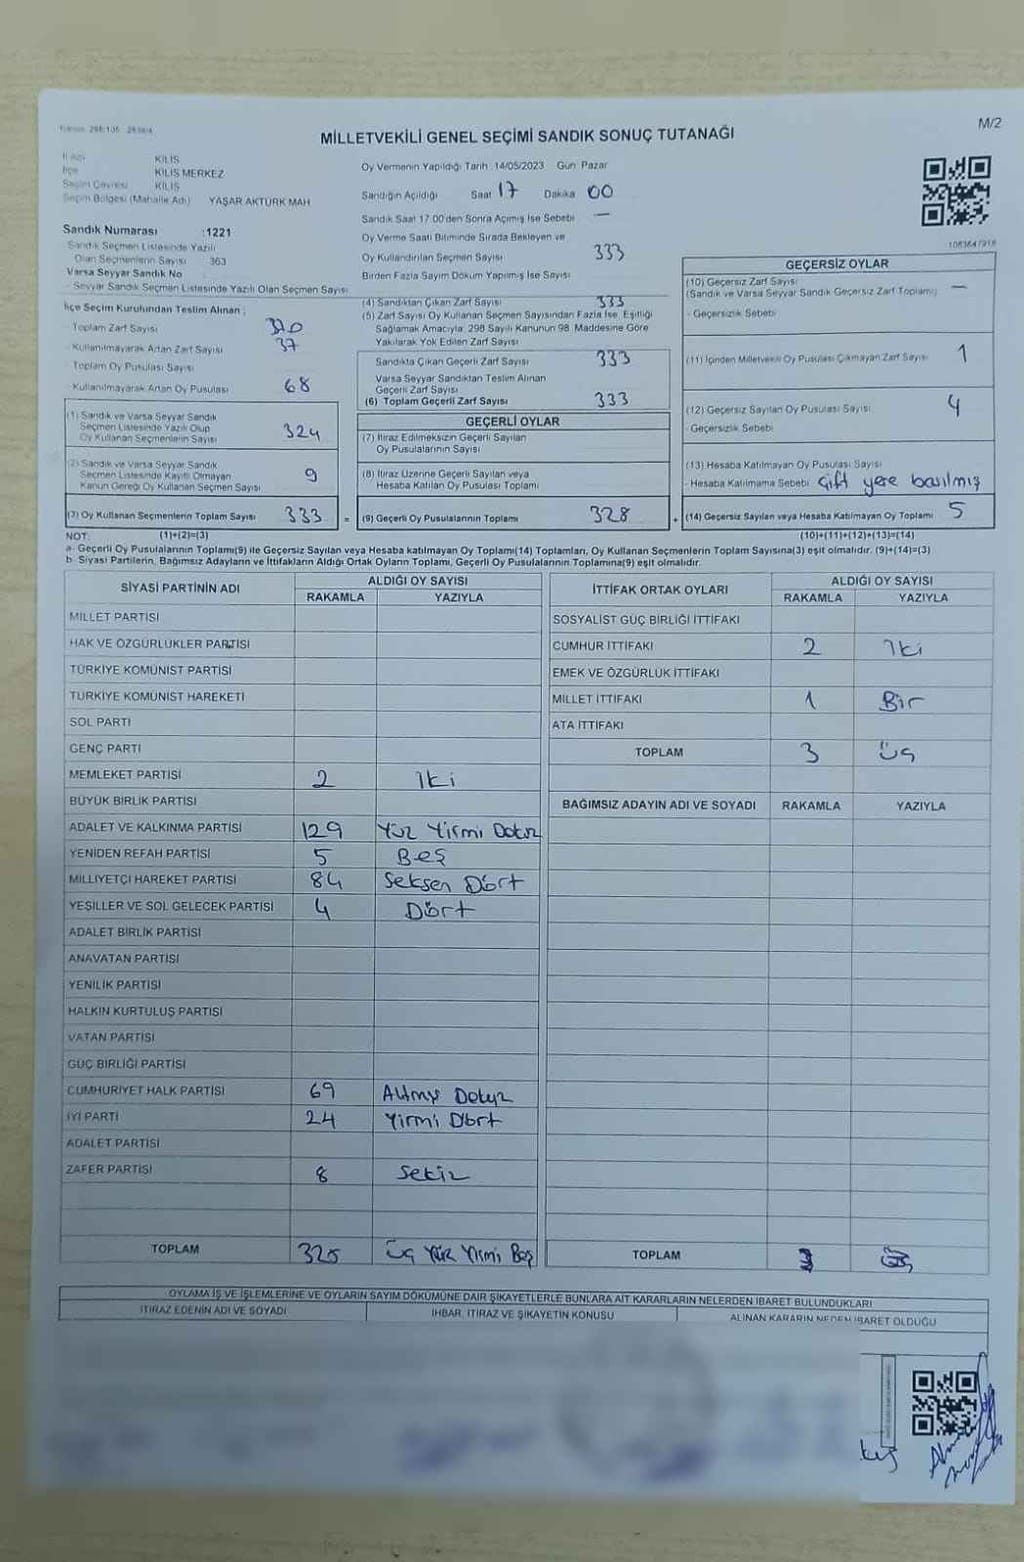 M/2
MİLLETVEKİLİ GENEL SEÇİMİ SANDIK SONUÇ TUTANAĞI
KİLİS
İlçe KİLİS MERKEZ
Seçim Çevresi KİLİS
Seçim Bölgesi (Mahalle Adı) YAŞAR AKTÜRK MAH
Sandık Numarası :1221
Sandık Seçmen Listesinde Yazılı
Olan Seçmenlerin Sayısı 363
Varsa Seyyar Sandık No
Seyyar Sandık Seçmen Listesinde Yazılı Olan Seçmen Sayısı
İlçe Seçim Kurulundan Teslim Alınan ;
- Toplam Zarf Sayısı 370
- Kullanılmayarak Artan Zarf Sayısı 37
- Toplam Oy Pusulası Sayısı
- Kullanılmayarak Artan Oy Pusulası 68
(1) Sandık ve Varsa Seyyar Sandık
Seçmen Listesinde Yazılı Olup
Oy Kullanan Seçmenlerin Sayısı 324
(2) Sandık ve Varsa Seyyar Sandık
Seçmen Listesinde Kayıtlı Olmayan
Kanun Gereği Oy Kullanan Seçmen Sayısı 9
(3) Oy Kullanan Seçmenlerin Toplam Sayısı 333 =
Oy Vermenin Yapıldığı Tarih :14/05/2023 Gün: Pazar
Sandığın Açıldığı Saat 17 Dakika 00
Sandık Saat 17.00'den Sonra Açılmış İse Sebebi —
Oy Verme Saati Bitiminde Sırada Bekleyen ve
Oy Kullandırılan Seçmen Sayısı 333
Birden Fazla Sayım Döküm Yapılmış İse Sayısı
(4) Sandıktan Çıkan Zarf Sayısı 333
(5) Zarf Sayısı Oy Kullanan Seçmen Sayısından Fazla İse, Eşitliği
Sağlamak Amacıyla, 298 Sayılı Kanunun 98. Maddesine Göre
Yakılarak Yok Edilen Zarf Sayısı
Sandıkta Çıkan Geçerli Zarf Sayısı 333
Varsa Seyyar Sandıktan Teslim Alınan
Geçerli Zarf Sayısı
(6) Toplam Geçerli Zarf Sayısı 333
GEÇERLİ OYLAR
(7) İtiraz Edilmeksizin Geçerli Sayılan
Oy Pusulalarının Sayısı
(8) İtiraz Üzerine Geçerli Sayılan veya
Hesaba Katılan Oy Pusulası Toplamı
(9) Geçerli Oy Pusulalarının Toplamı 328 +
1083647918
GEÇERSİZ OYLAR
(10) Geçersiz Zarf Sayısı
(Sandık ve Varsa Seyyar Sandık Geçersiz Zarf Toplamı) —
- Geçersizlik Sebebi
(11) İçinden Milletvekili Oy Pusulası Çıkmayan Zarf Sayısı 1
(12) Geçersiz Sayılan Oy Pusulası Sayısı 4
- Geçersizlik Sebebi
(13) Hesaba Katılmayan Oy Pusulası Sayısı
- Hesaba Katılmama Sebebi Çift yere basılmış
(14) Geçersiz Sayılan veya Hesaba Katılmayan Oy Toplamı 5
NOT: (1)+(2)=(3) (10)+(11)+(12)+(13)=(14)
a- Geçerli Oy Pusulalarının Toplamı(9) ile Geçersiz Sayılan veya Hesaba katılmayan Oy Toplamı(14) Toplamları, Oy Kullanan Seçmenlerin Toplam Sayısına(3) eşit olmalıdır. (9)+(14)=(3)
b- Siyasi Partilerin, Bağımsız Adayların ve İttifakların Aldığı Ortak Oyların Toplamı, Geçerli Oy Pusulalarının Toplamına(9) eşit olmalıdır.
SİYASİ PARTİNİN ADI ALDIĞI OY SAYISI
RAKAMLA YAZIYLA
MİLLET PARTİSİ
HAK VE ÖZGÜRLÜKLER PARTİSİ
TÜRKİYE KOMÜNİST PARTİSİ
TÜRKİYE KOMÜNİST HAREKETİ
SOL PARTİ
GENÇ PARTİ
MEMLEKET PARTİSİ 2 İki
BÜYÜK BİRLİK PARTİSİ
ADALET VE KALKINMA PARTİSİ 129 Yüz Yirmi Dokuz
YENİDEN REFAH PARTİSİ 5 Beş
MİLLİYETÇİ HAREKET PARTİSİ 84 Seksen Dört
YEŞİLLER VE SOL GELECEK PARTİSİ 4 Dört
ADALET BİRLİK PARTİSİ
ANAVATAN PARTİSİ
YENİLİK PARTİSİ
HALKIN KURTULUŞ PARTİSİ
VATAN PARTİSİ
GÜÇ BİRLİĞİ PARTİSİ
CUMHURİYET HALK PARTİSİ 69 Altmış Dokuz
İYİ PARTİ 24 Yirmi Dört
ADALET PARTİSİ
ZAFER PARTİSİ 8 Sekiz
TOPLAM 325 Üç Yüz Yirmi Beş
İTTİFAK ORTAK OYLARI ALDIĞI OY SAYISI
RAKAMLA YAZIYLA
SOSYALİST GÜÇ BİRLİĞİ İTTİFAKI
CUMHUR İTTİFAKI 2 İki
EMEK VE ÖZGÜRLÜK İTTİFAKI
MİLLET İTTİFAKI 1 Bir
ATA İTTİFAKI
TOPLAM 3 Üç
BAĞIMSIZ ADAYIN ADI VE SOYADI RAKAMLA YAZIYLA
TOPLAM
OYLAMA İŞ VE İŞLEMLERİNE VE OYLARIN SAYIM DÖKÜMÜNE DAİR ŞİKAYETLERLE BUNLARA AİT KARARLARIN NELERDEN İBARET BULUNDUKLARI
İTİRAZ EDENİN ADI VE SOYADI İHBAR, İTİRAZ VE ŞİKAYETİN KONUSU ALINAN KARARIN NEDEN İBARET OLDUĞU